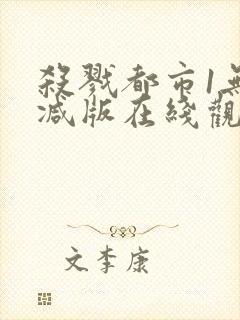 殺戮都市1無
减版在綫觀
文李康